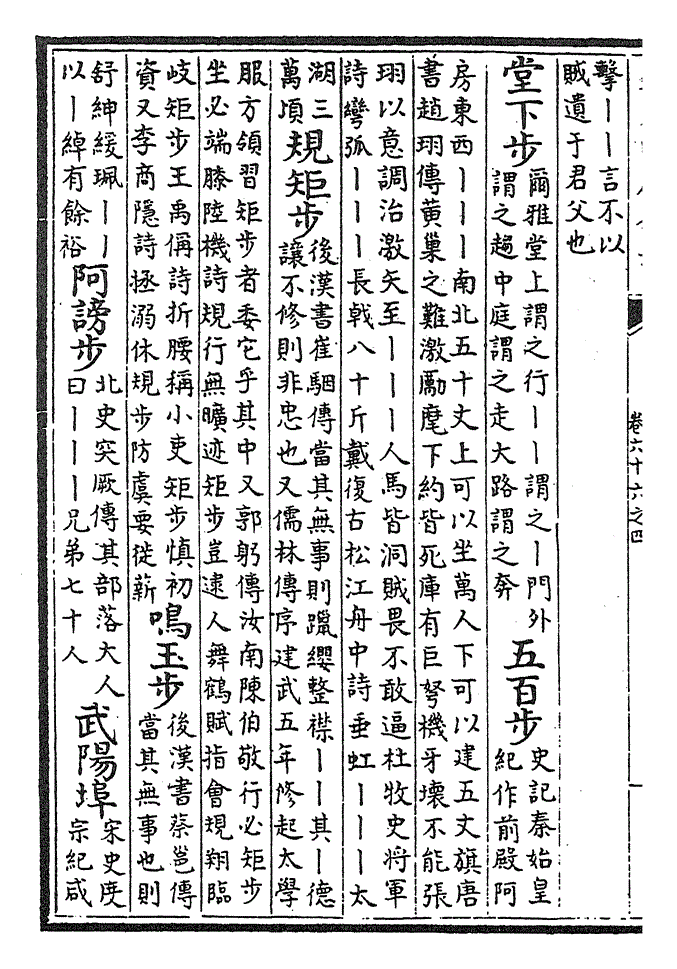 卷六十六之四
擊丨丨言不以
賊遺于君父也
堂下步
爾雅堂上謂之行丨丨謂之丨門外
謂之趨中庭謂之走大路謂之奔
五百步
史記秦始皇
紀作前殿阿
房東西丨丨丨南北五十丈上可以坐萬人下可以建五丈旗唐
書趙珝傳黄巢之難激勵麾下約皆死庫有巨弩機牙壞不能張
珝以意調治激矢至丨丨丨人馬皆洞賊畏不敢逼杜牧史將軍
詩彎弧丨丨丨長戟八十斤戴復古松江舟中詩垂虹丨丨丨太
湖三
萬頃
規矩步
後漢書崔駰傳當其無事則躐纓整襟丨丨其丨德
讓不修則非忠也又儒林傳序建武五年修起太學
服方領習矩步者委它乎其中又郭躬傳汝南陳伯敬行必矩步
坐必端膝陸機詩規行無曠迹矩步豈逮人舞鶴賦指會規翔臨
岐矩步王禹偁詩折腰稱小吏矩步慎初
資又李商隱詩拯溺休規步防虞要徙薪
鳴玉步
後漢書蔡邕傳
當其無事也則
舒紳緩珮丨丨
以丨綽有餘裕
阿謗步
北史突厥傳其部落大人
曰丨丨丨兄弟七十人
武陽埠
宋史度
宗紀咸